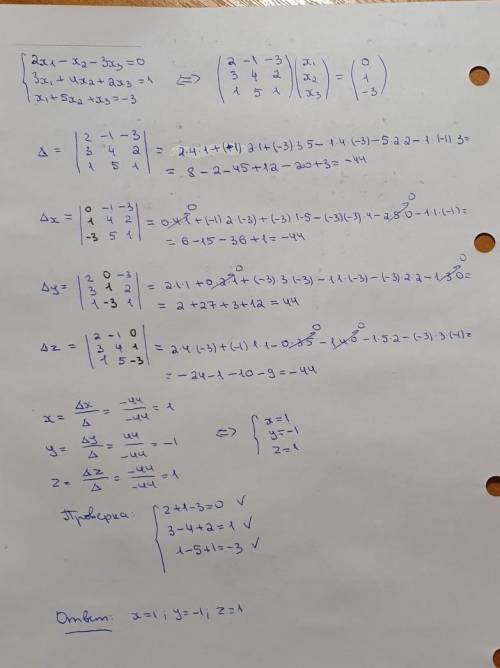 { 2x₁ − x₂ − 3x₃ = 0
3x₁ + 4x₂ + 2x₃ = 1
x₁ + 5x₂ + x₃ = −3 ⇔ ( 2 −1 −3
3 4 2
1 5 1 ) ( x₁
x₂
x₃ ) = ( 0
1
−3 )
Δ = | 2 −1 −3
3 4 2
1 5 1 | = 2·4·1 + (−1)·2·1 + (−3)·3·5 − 1·4·(−3) − 5·2·2 − 1·(−1)·3 =
= 8 − 2 − 45 + 12 − 20 + 3 = −44
Δx = | 0 −1 −3
1 4 2
−3 5 1 | = 0·4·1 0 + (−1)·2·(−3) + (−3)·1·5 − (−3)(−3)·4 − 2·5·0 0 − 1·1·(−1) =
= 6 − 15 − 36 + 1 = −44
Δy = | 2 0 −3
3 1 2
1 −3 1 | = 2·1·1 + 0·2·1 0 + (−3)·3·(−3) − 1·1·(−3) − (−3)·2·2 − 1·3·0 0 =
= 2 + 27 + 3 + 12 = 44
Δz = | 2 −1 0
3 4 1
1 5 −3 | = 2·4·(−3) + (−1)·1·1 − 0·3·5 0 − 1·4·0 0 − 1·5·2 − (−3)·3·(−1) =
= −24 − 1 − 10 − 9 = −44
x = Δx/Δ = −44/−44 = 1
y = Δy/Δ = 44/−44 = −1
z = Δz/Δ = −44/−44 = 1 ⇔ { x = 1
y = −1
z = 1
Проверка: { 2 + 1 − 3 = 0 ✓
3 − 4 + 2 = 1 ✓
1 − 5 + 1 = −3 ✓
Ответ: x = 1; y = −1; z = 1